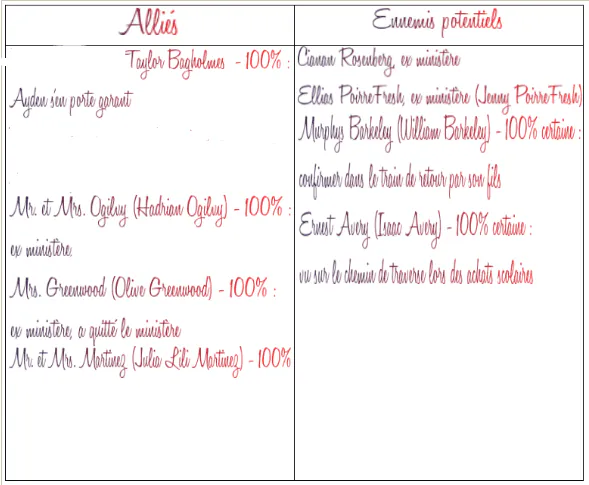 Alliés
Taylor Bagholmes - 100% :
Ayden s'en porte garant
Mr. et Mrs. Ogilvy (Hadrian Ogilvy) - 100% :
ex ministère.
Mrs. Greenwood (Olive Greenwood) - 100% :
ex ministère, a quitté le ministère
Mr. et Mrs. Martinez (Julia Lili Martinez) - 100%
Ennemis potentiels
Cianan Rosenberg, ex ministère
Ellias PoirreFresh, ex ministère (Jenny PoirreFresh)
Murphys Barkeley (William Barkeley) - 100% certaine :
confirmer dans le train de retour par son fils
Ernest Avery (Isaac Avery) - 100% certaine :
vu sur le chemin de traverse lors des achats scolaires